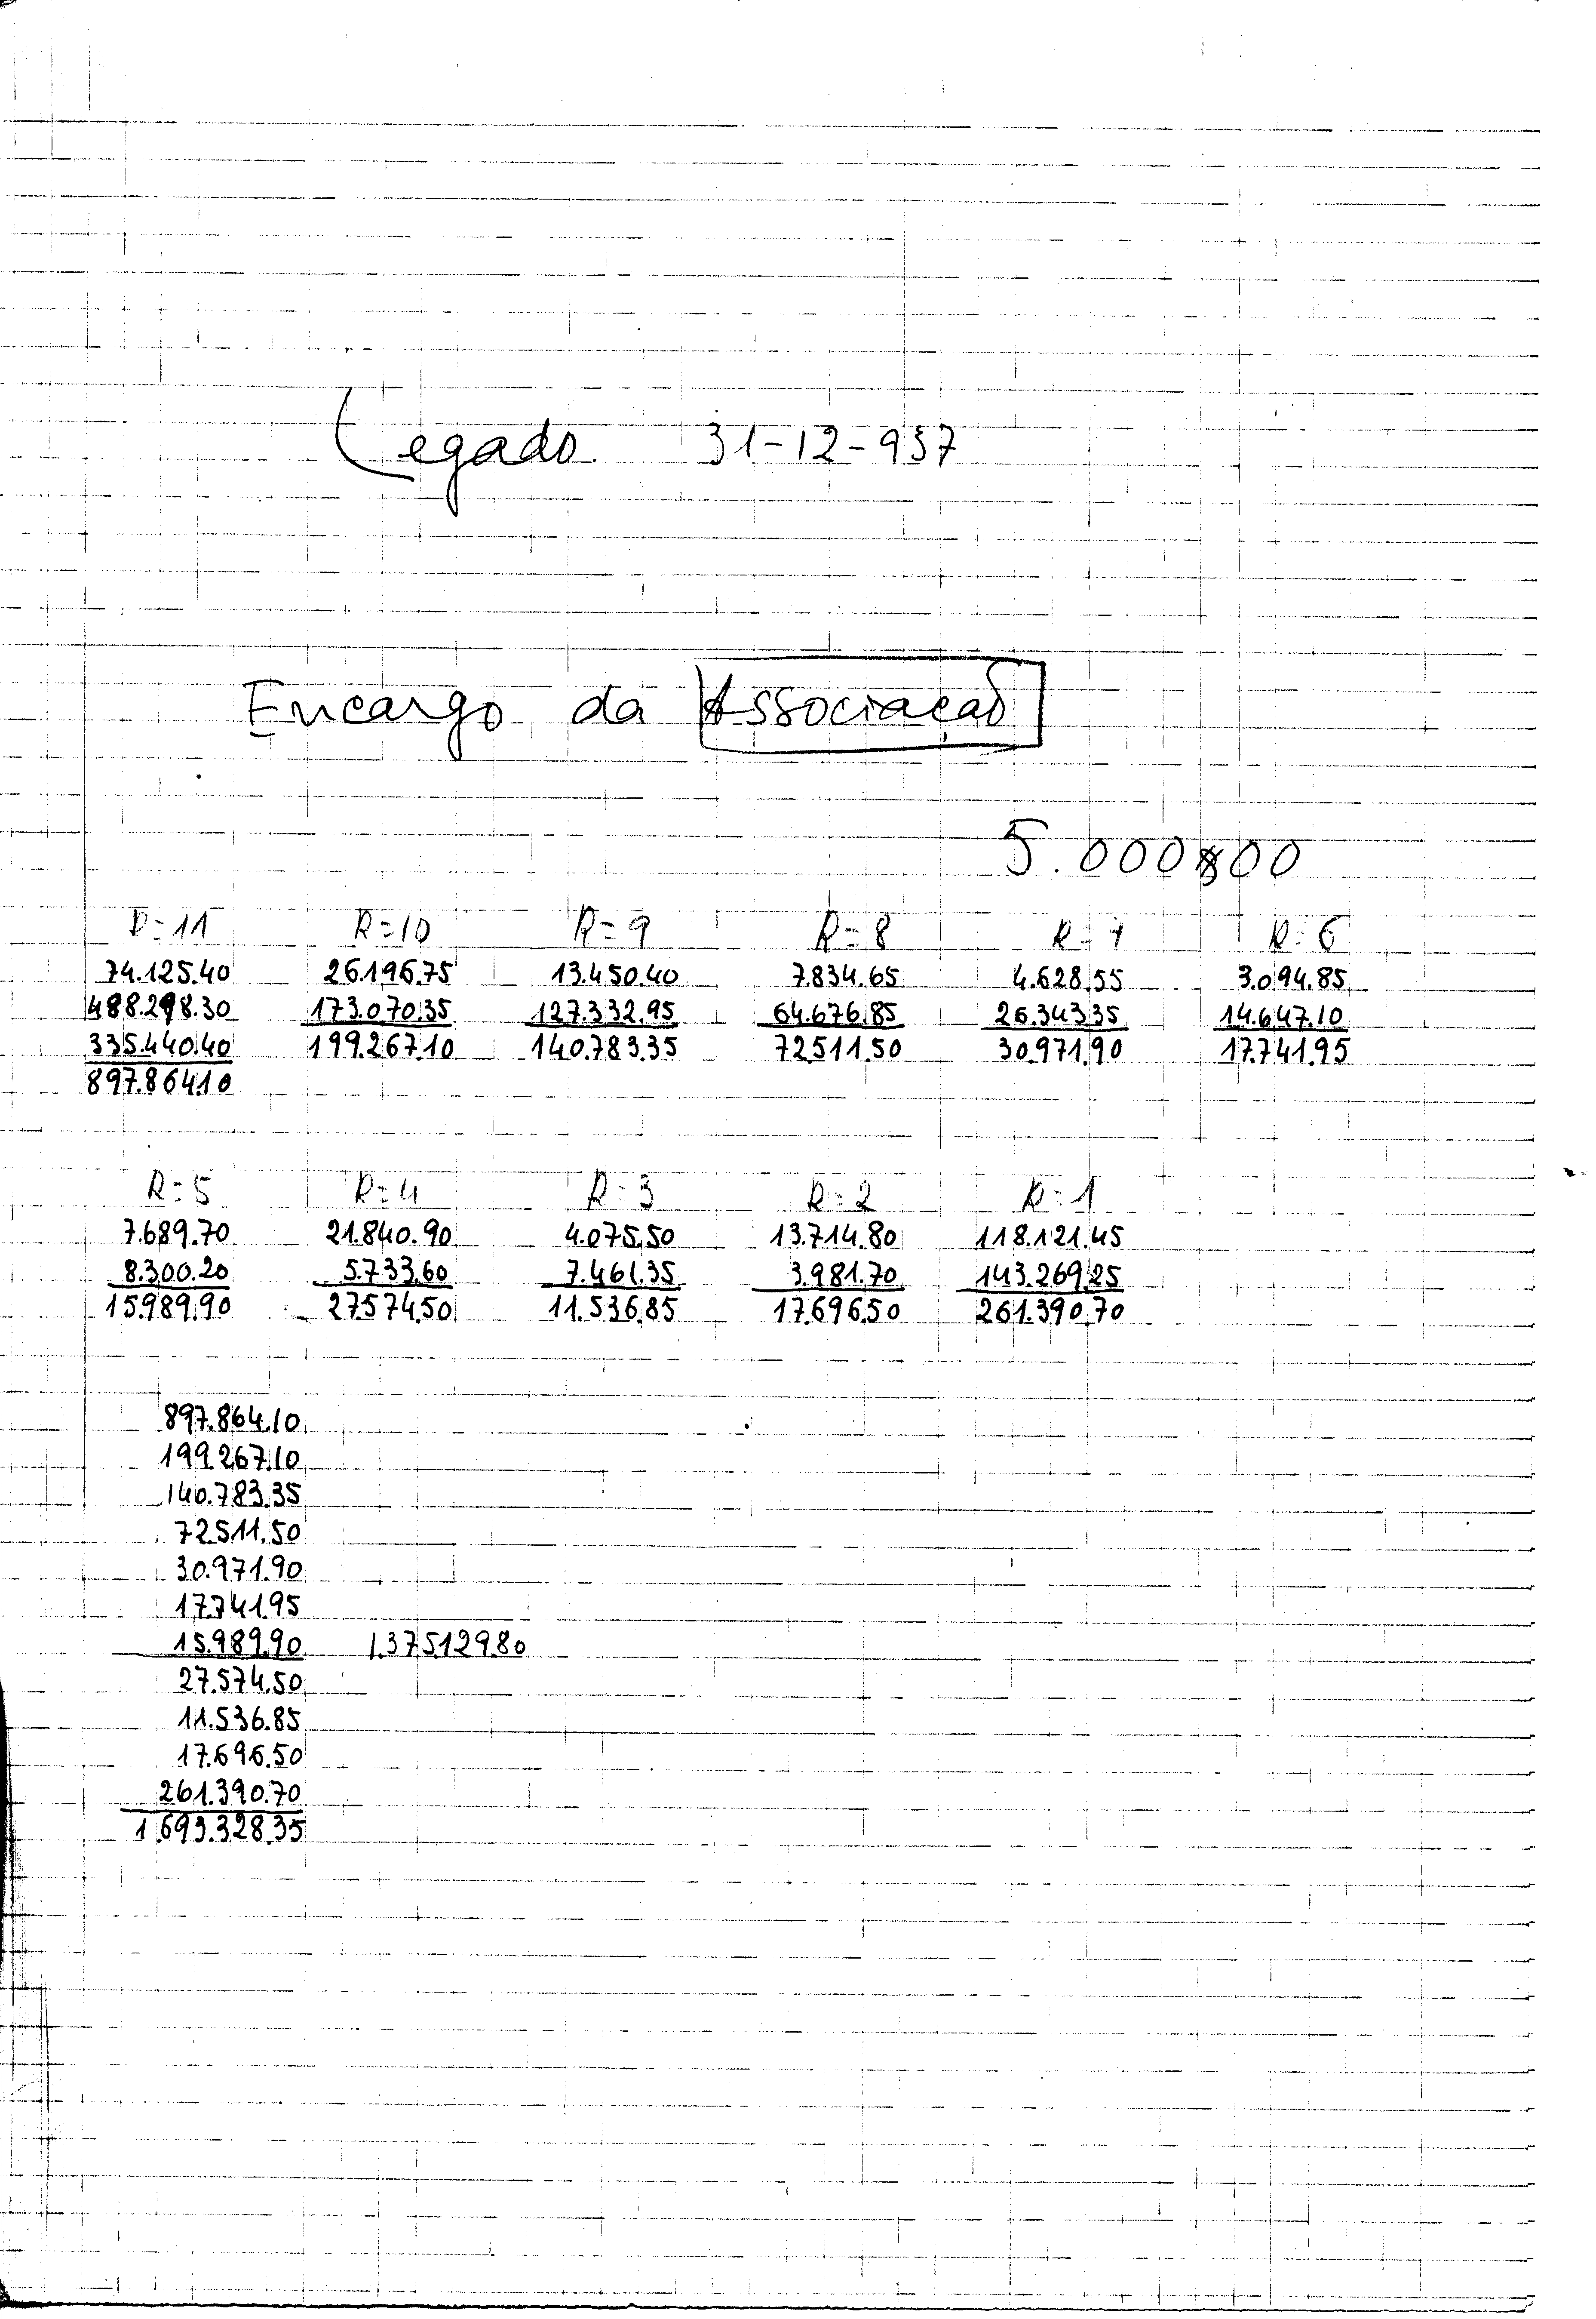 Legado 31-12-937
Encargo da Associação
5.000$00
R=11 R=10 R=9 R=8 R=7 R=6
74.125.40 26.196.75 13.450.40 7.834.65 4.628.55 3.094.85
488.298.30 173.070.35 127.332.95 64.676.85 26.343.35 14.647.10
335.440.40 199.267.10 140.783.35 72.511.50 30.971.90 17.741.95
897.864.10
R=5 R=4 R=3 R=2 R=1
7.689.70 21.840.90 4.075.50 13.714.80 118.121.45
8.300.20 5.733.60 7.461.35 3.981.70 143.269.25
15.989.90 27.574.50 11.536.85 17.696.50 261.390.70
897.864.10
199.267.10
140.783.35
72.511.50
30.971.90
17.741.95
15.989.90 1.375.129.80
27.574.50
11.536.85
17.696.50
261.390.70
1.693.328.35